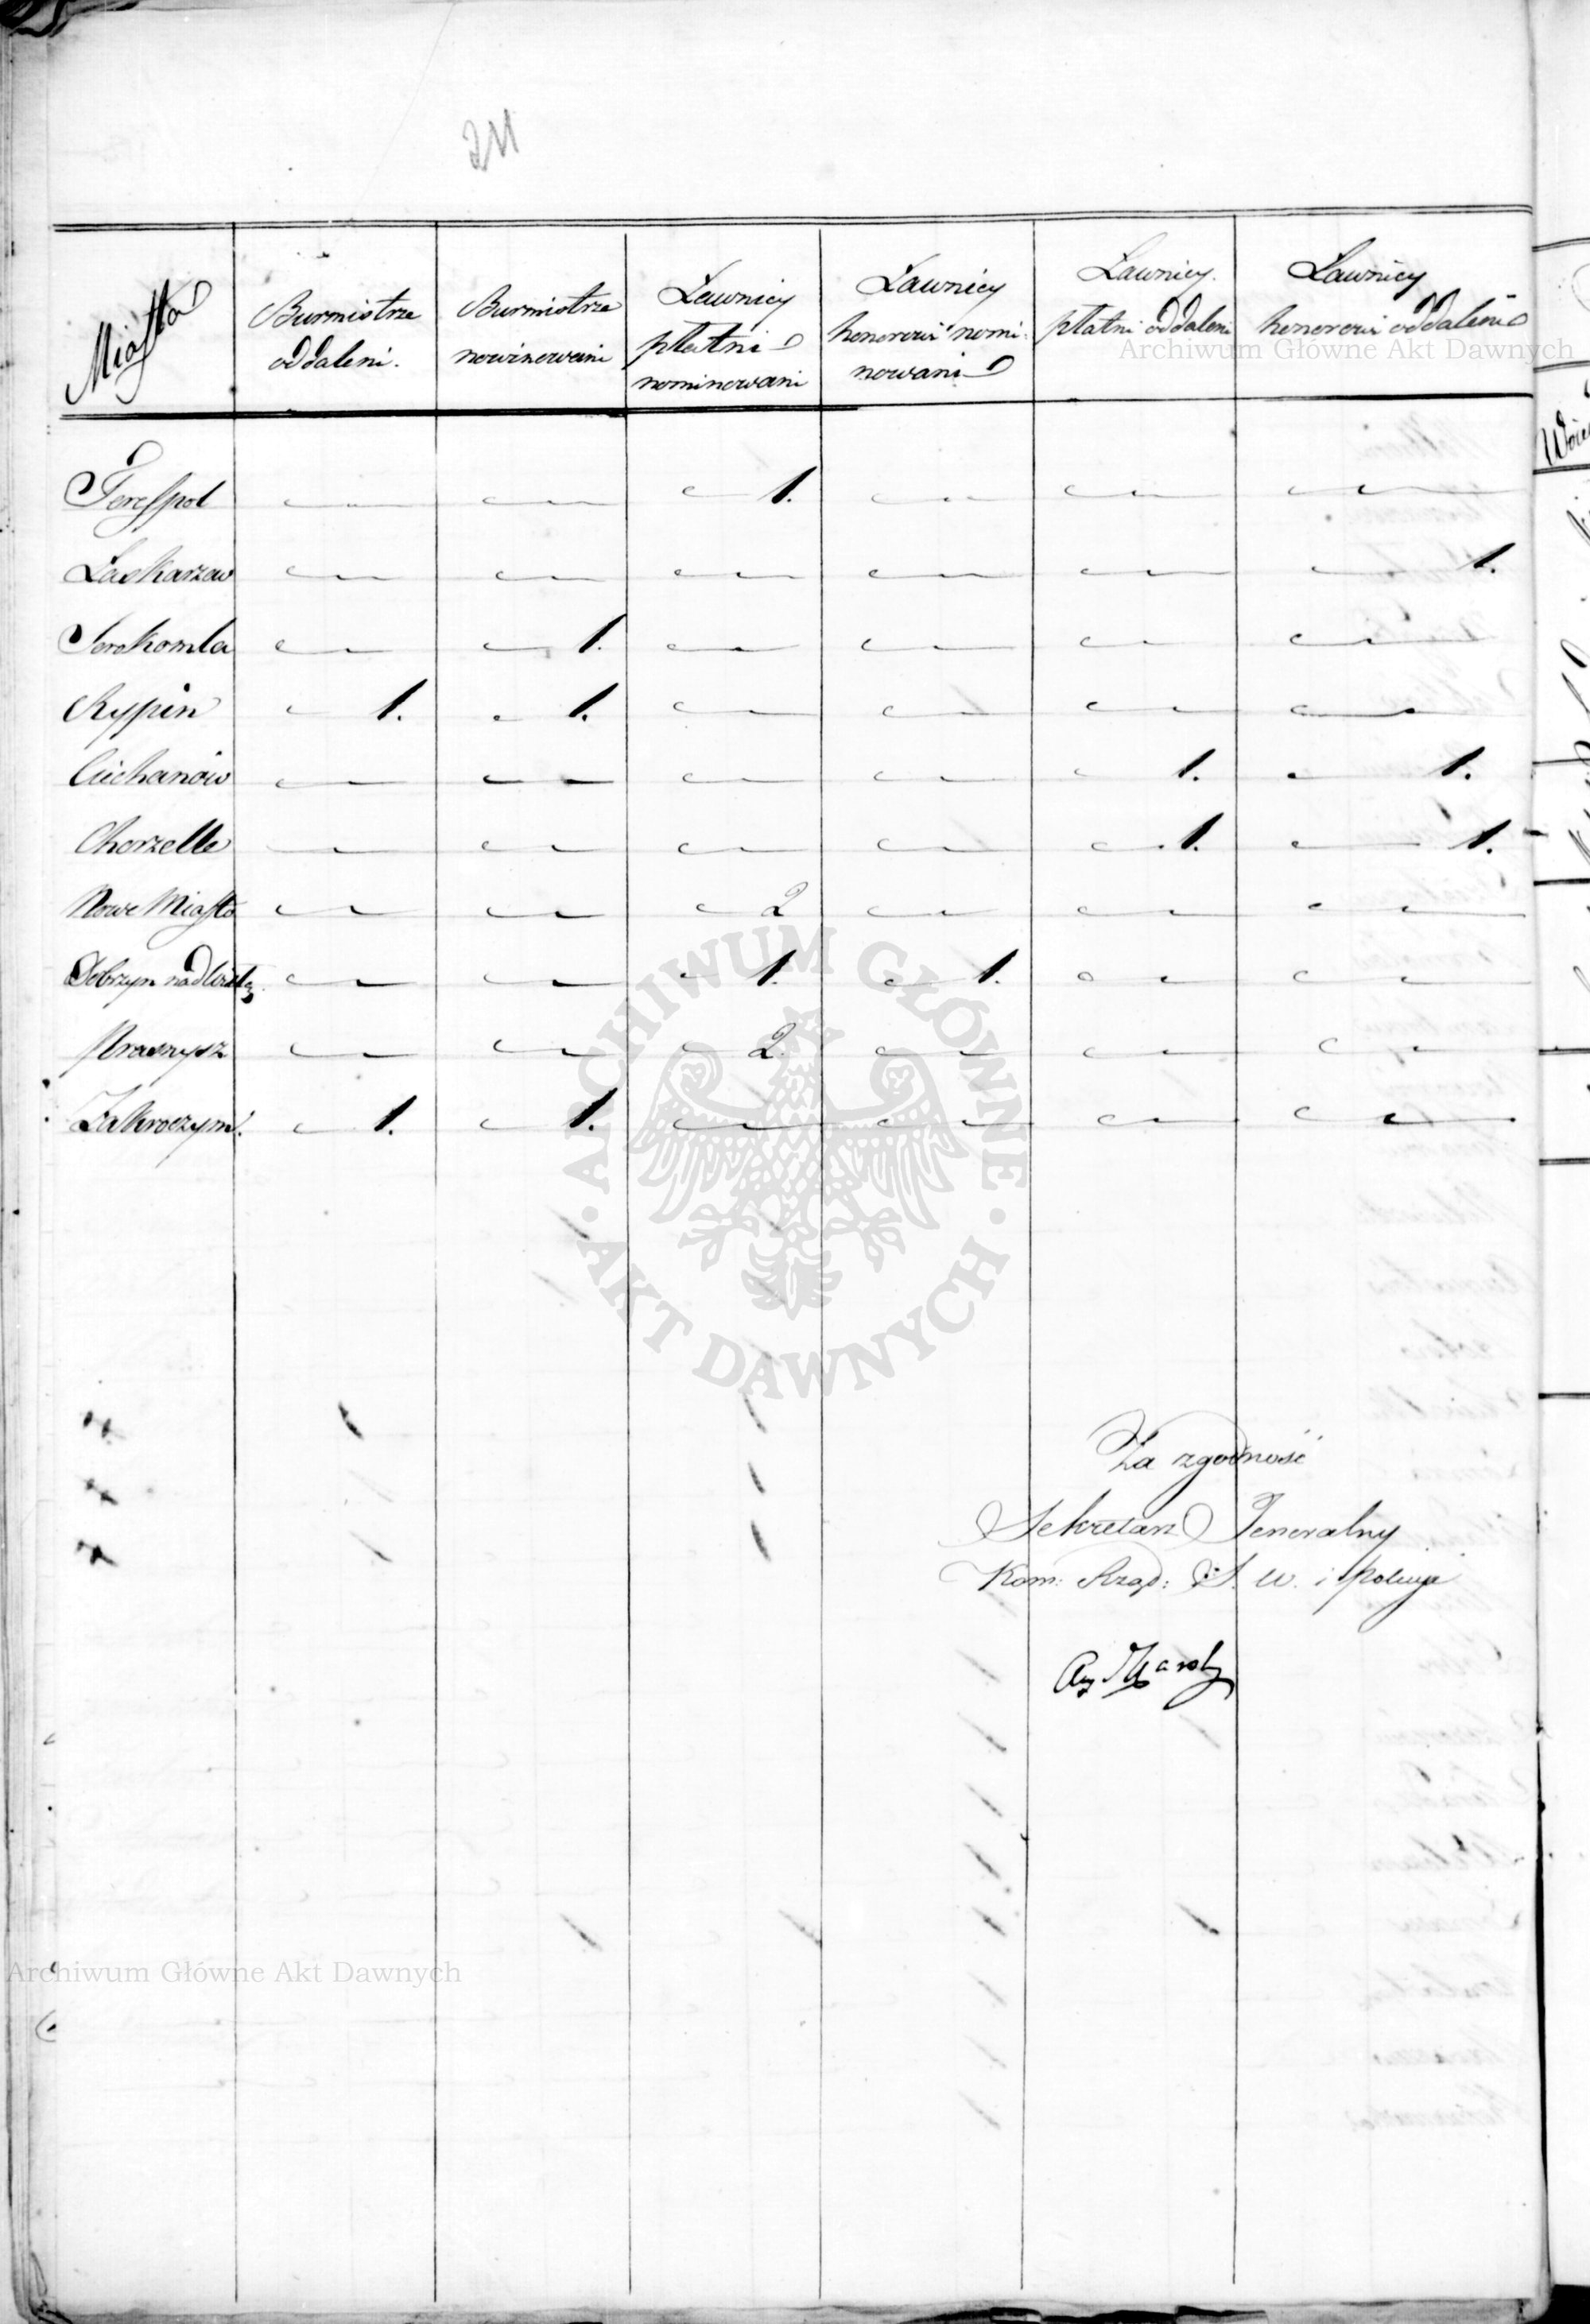 211
Miasta
Burmistrze oddaleni.
Burmistrze nominowani
Ławnicy płatni nominowani
Ławnicy honorowi nomi- nowani
Ławnicy płatni oddaleni
Ławnicy honorowi oddaleni
Terespol — — 1. — — —
Łaskarzew — — — — — 1.
Serokomla — 1. — — — —
Rypin 1. 1. — — — —
Ciechanów — — — — 1. 1.
Chorzelle — — — — 1. 1.
Nowe Miasto — — 2 — — —
Dobrzyn nad Wisłą — — 1. 1. — —
Prasnysz — — 2. — — —
Zakroczym. 1. 1. — — — —
Za zgodność
Sekretarz Jeneralny
Kom: Rząd: S. W. i Policyi
Archiwum Główne Akt Dawnych
ARCHIWUM GŁÓWNE AKT DAWNYCH
Archiwum Główne Akt Dawnych